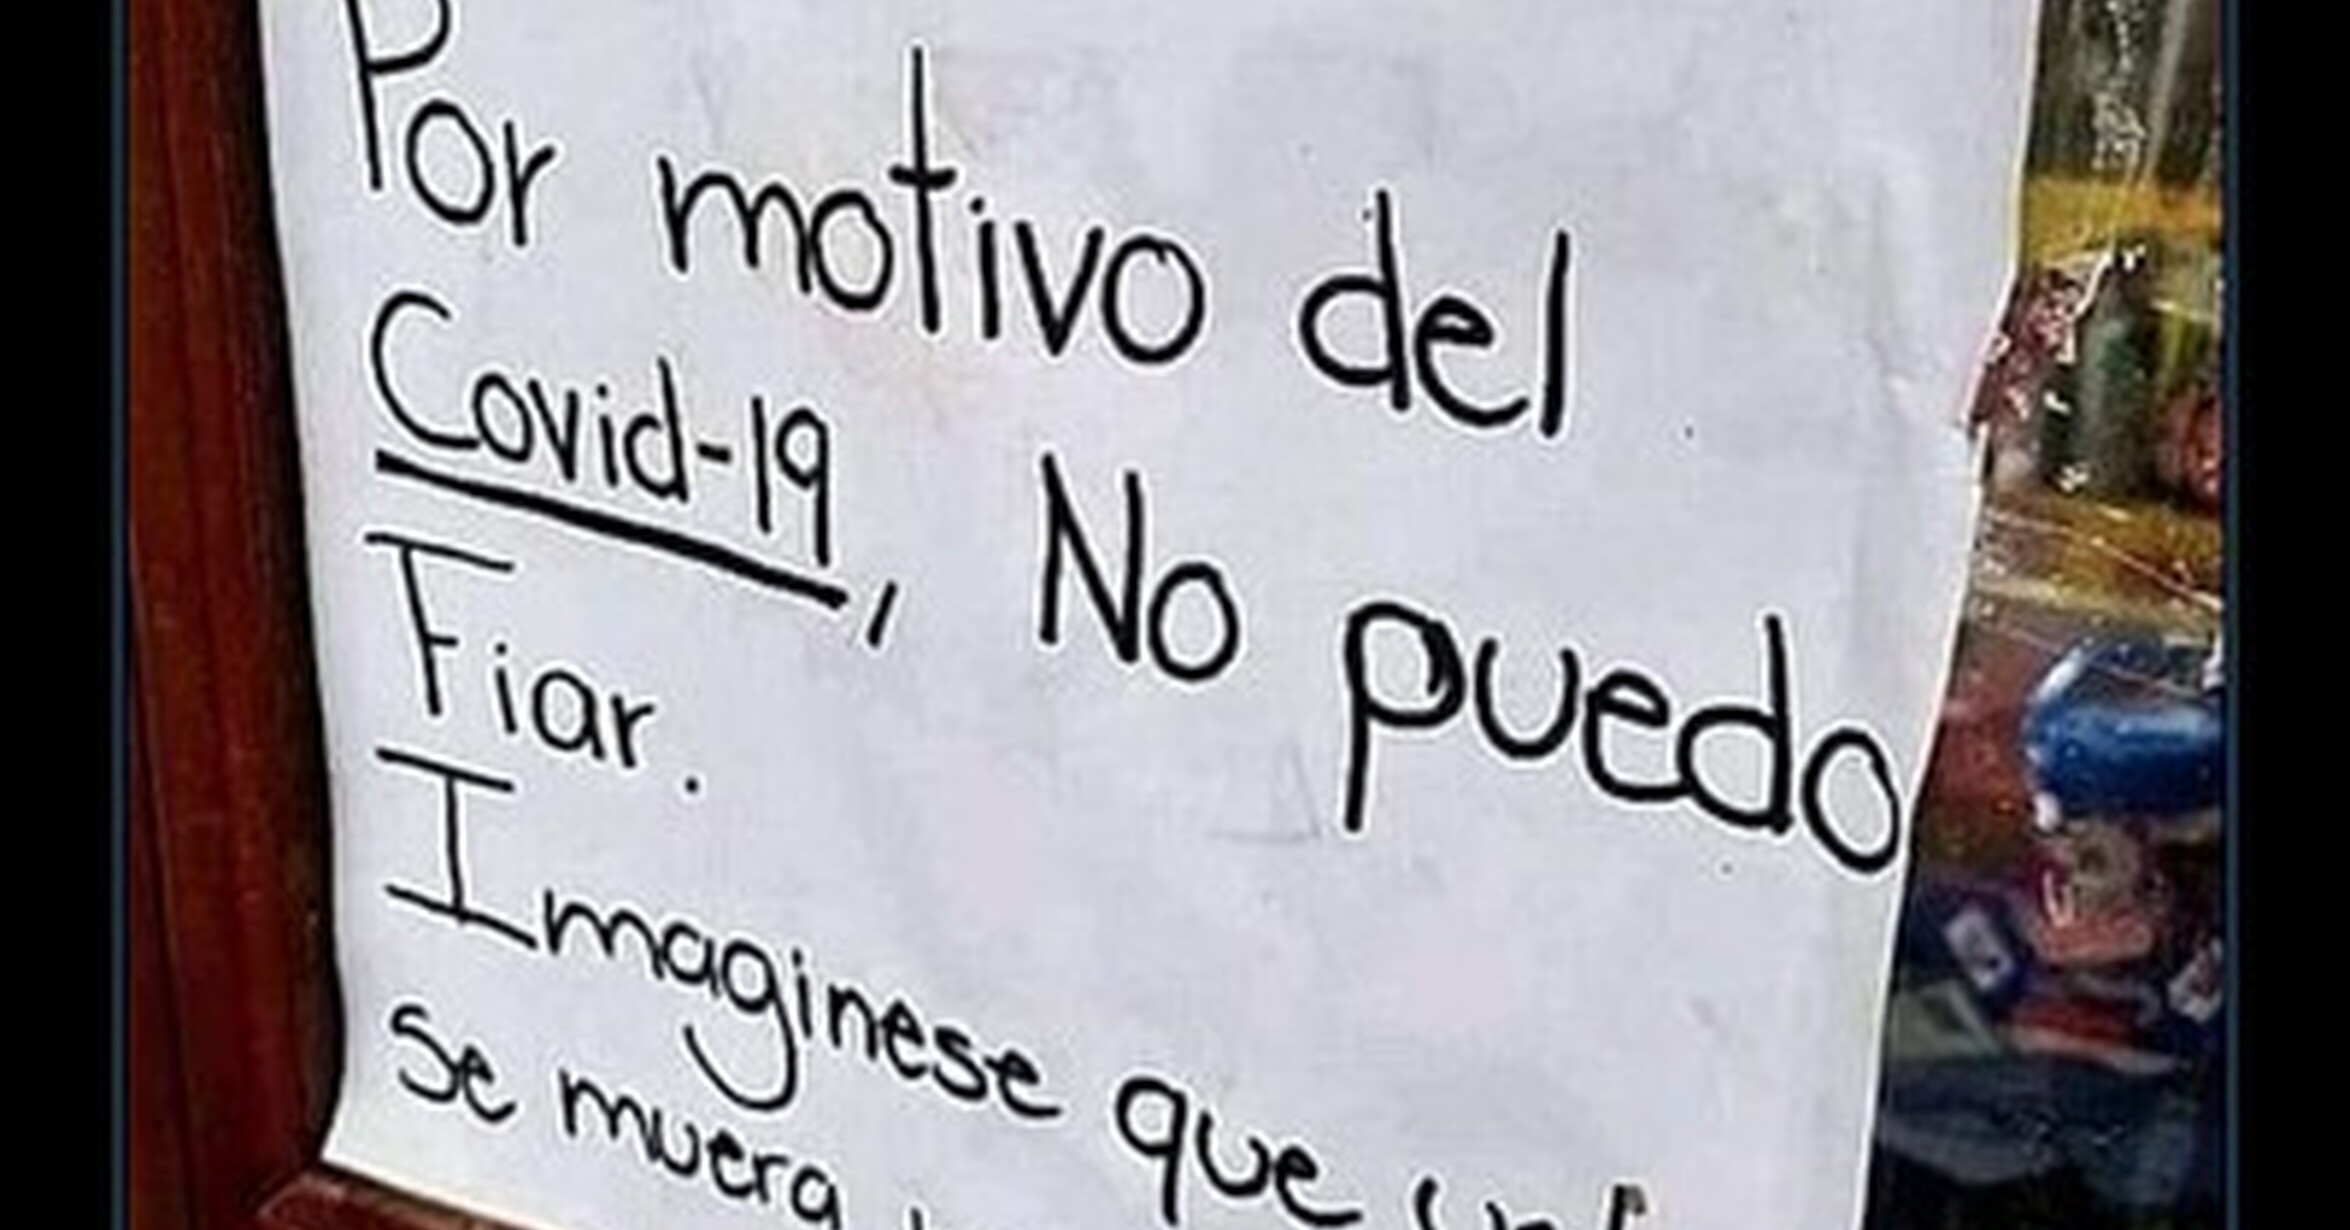 Por motivo del
Covid-19, No puedo
Fiar.
Imaginese que
Se muera